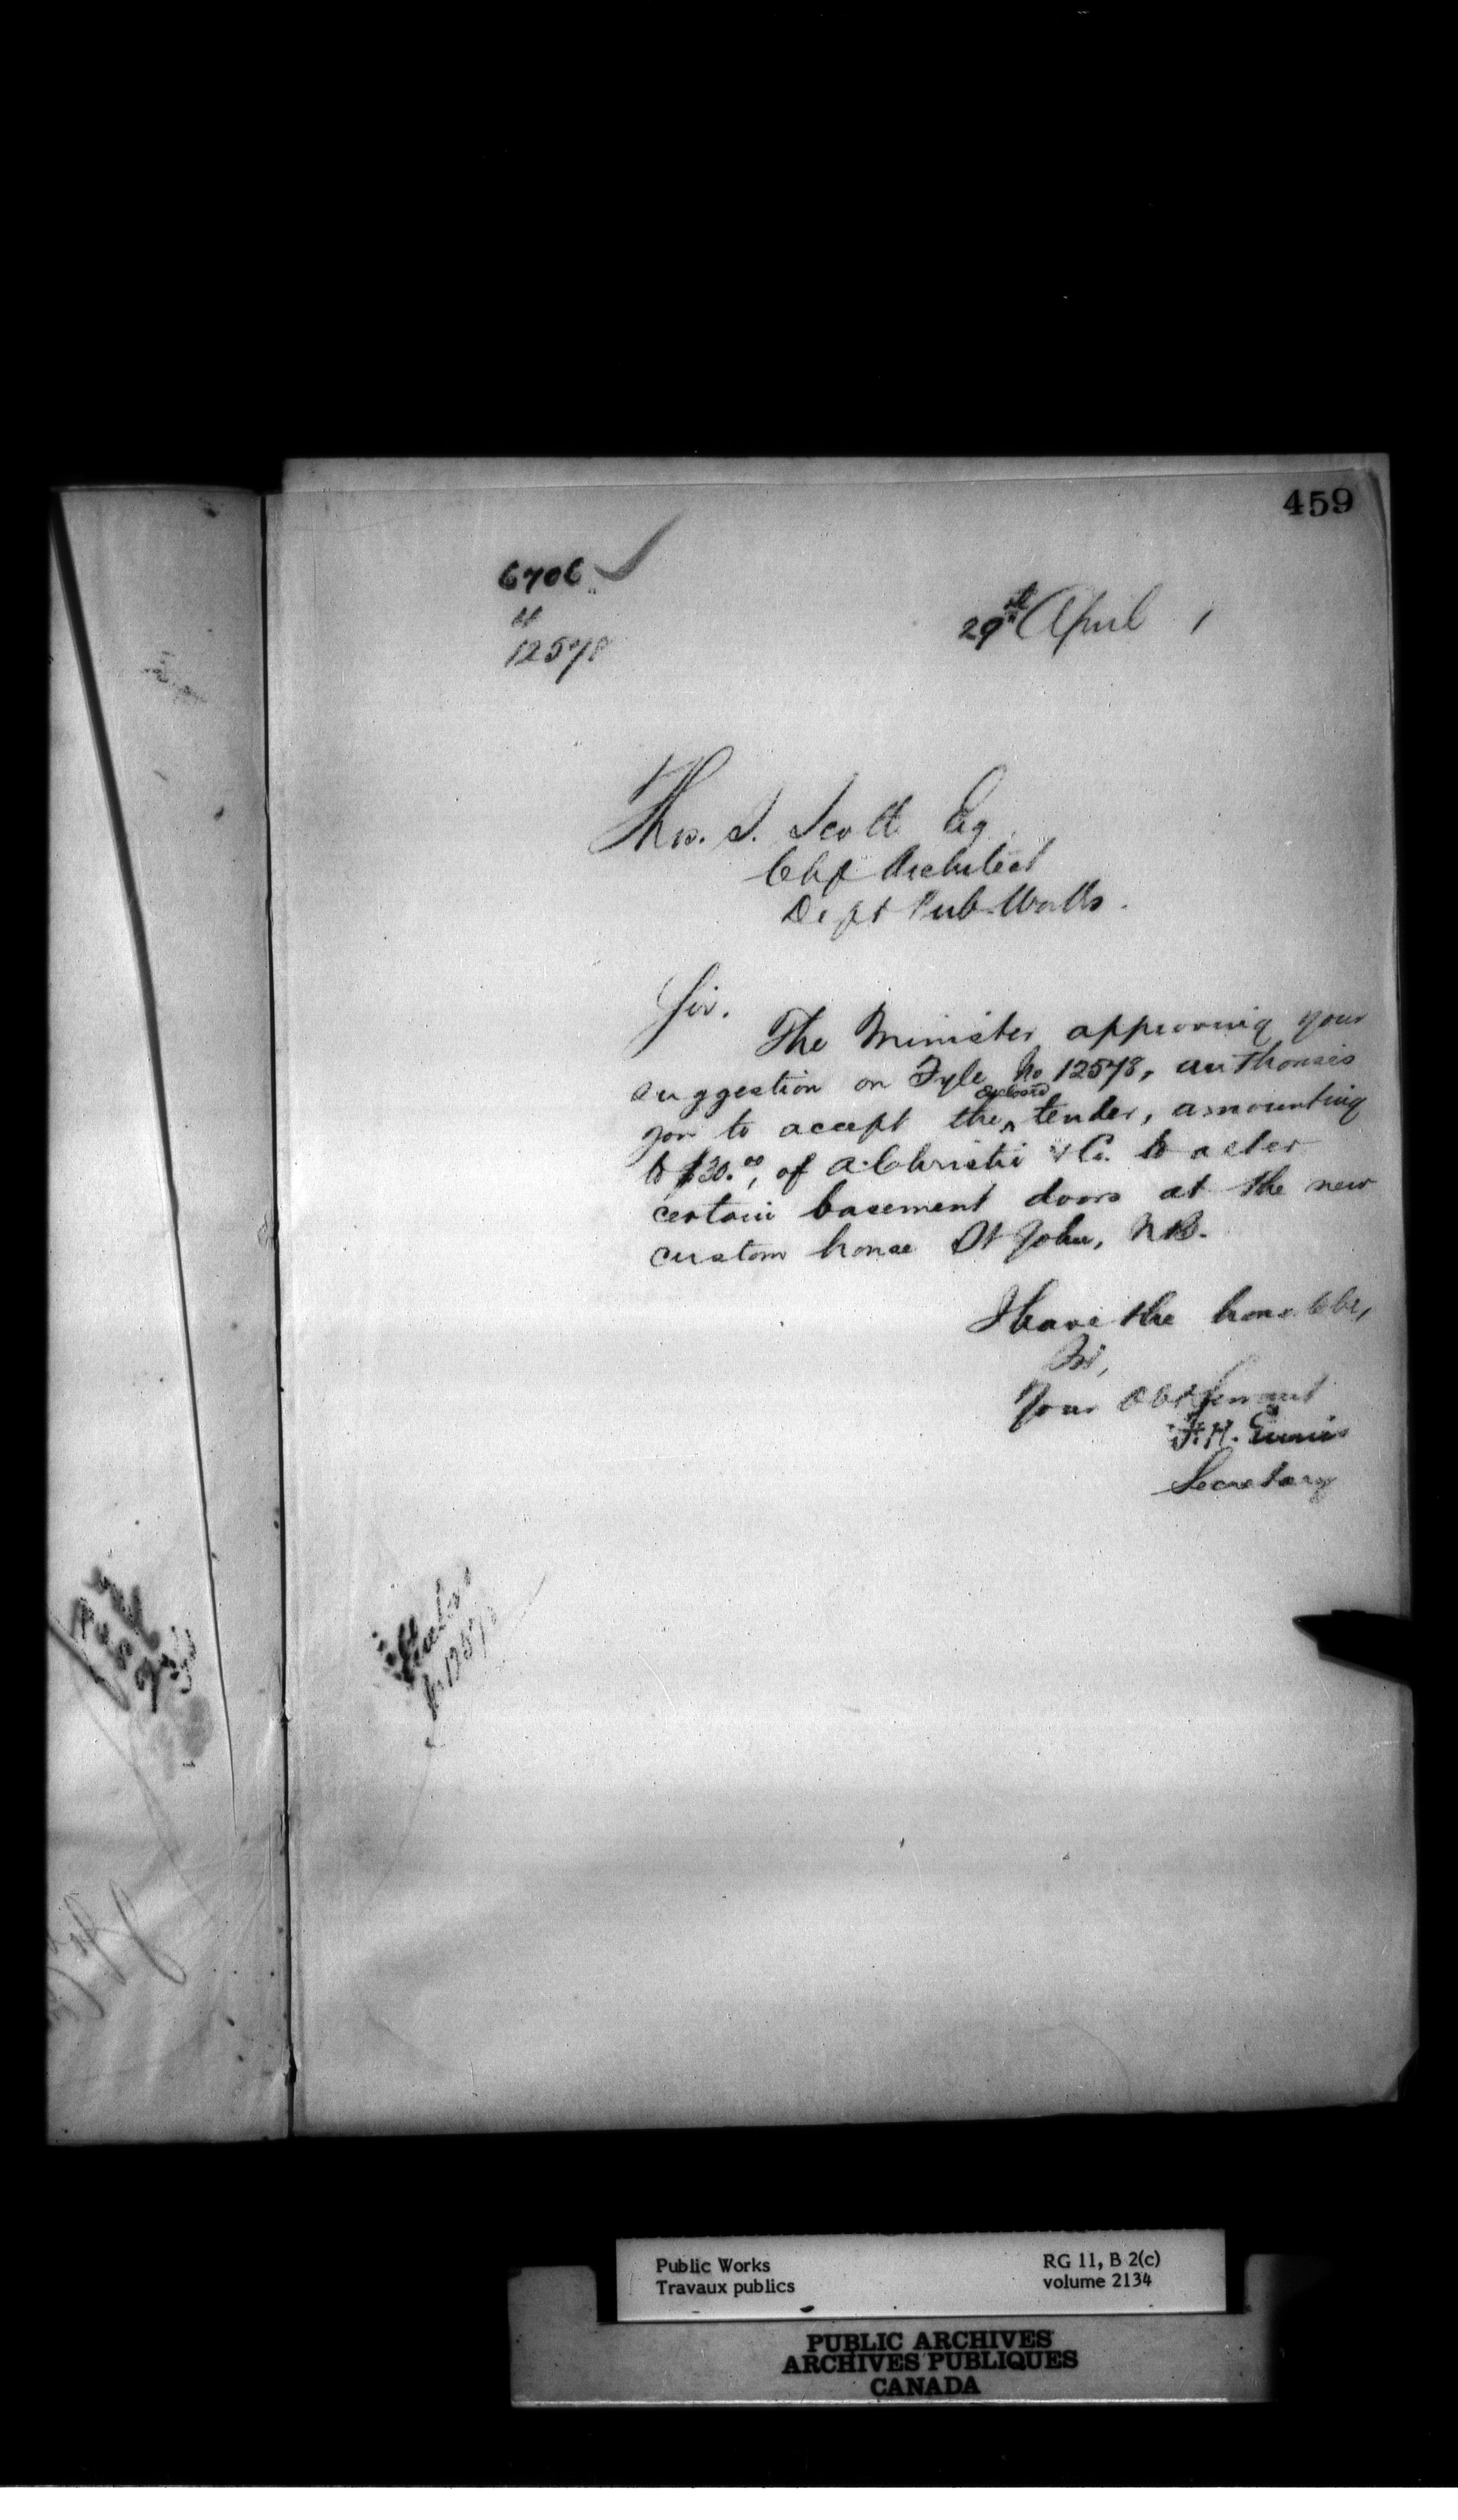 459
6706
12578
29th April 1
Thos. S. Scott Esq
Chf Architect
Dept Pub. Works.
Sir.
The Minister approving your
suggestion on Fyle No 12578, authorises
you to accept the enclosed tender, amounting
to $30.00, of A. Christie & Co. to alter
certain basement doors at the new
custom house St John, N.B.
I have the honor to be,
Sir,
Your Obt Servant
F. H. Ennis
Secretary
12578
Public Works
Travaux publics
RG 11, B 2(c)
volume 2134
PUBLIC ARCHIVES
ARCHIVES PUBLIQUES
CANADA